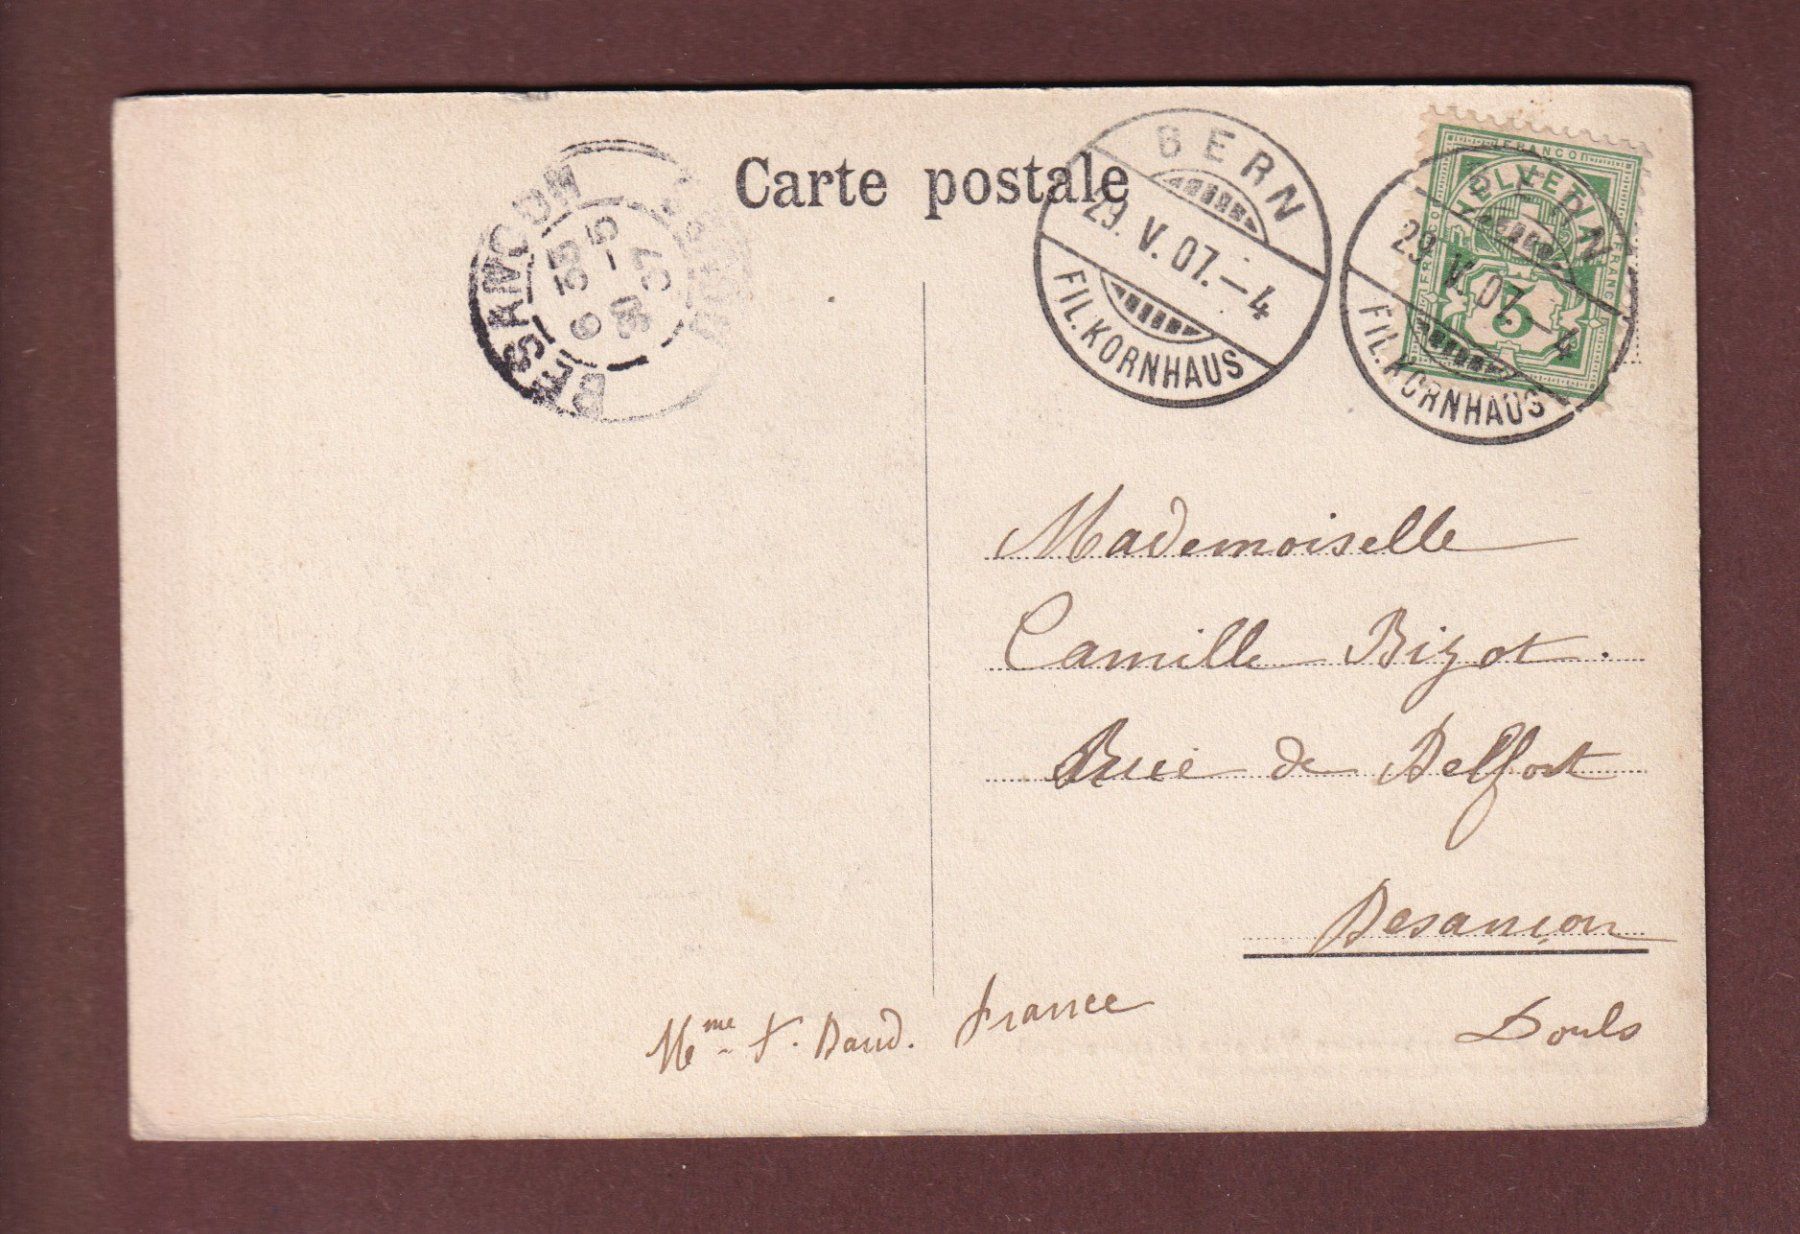 Carte postale
BESANÇON
6 35
31 -5
07
DOUBS
BERN
29. V. 07. – 4
FIL. KORNHAUS
FRANCO
HELVETIA
FRANCO
FRANCO
5
BERN
29. V. 07. – 4
FIL. KORNHAUS
Mademoiselle
Camille Bizot.
Rue de Belfort
Besançon
Mme
France
Doubs